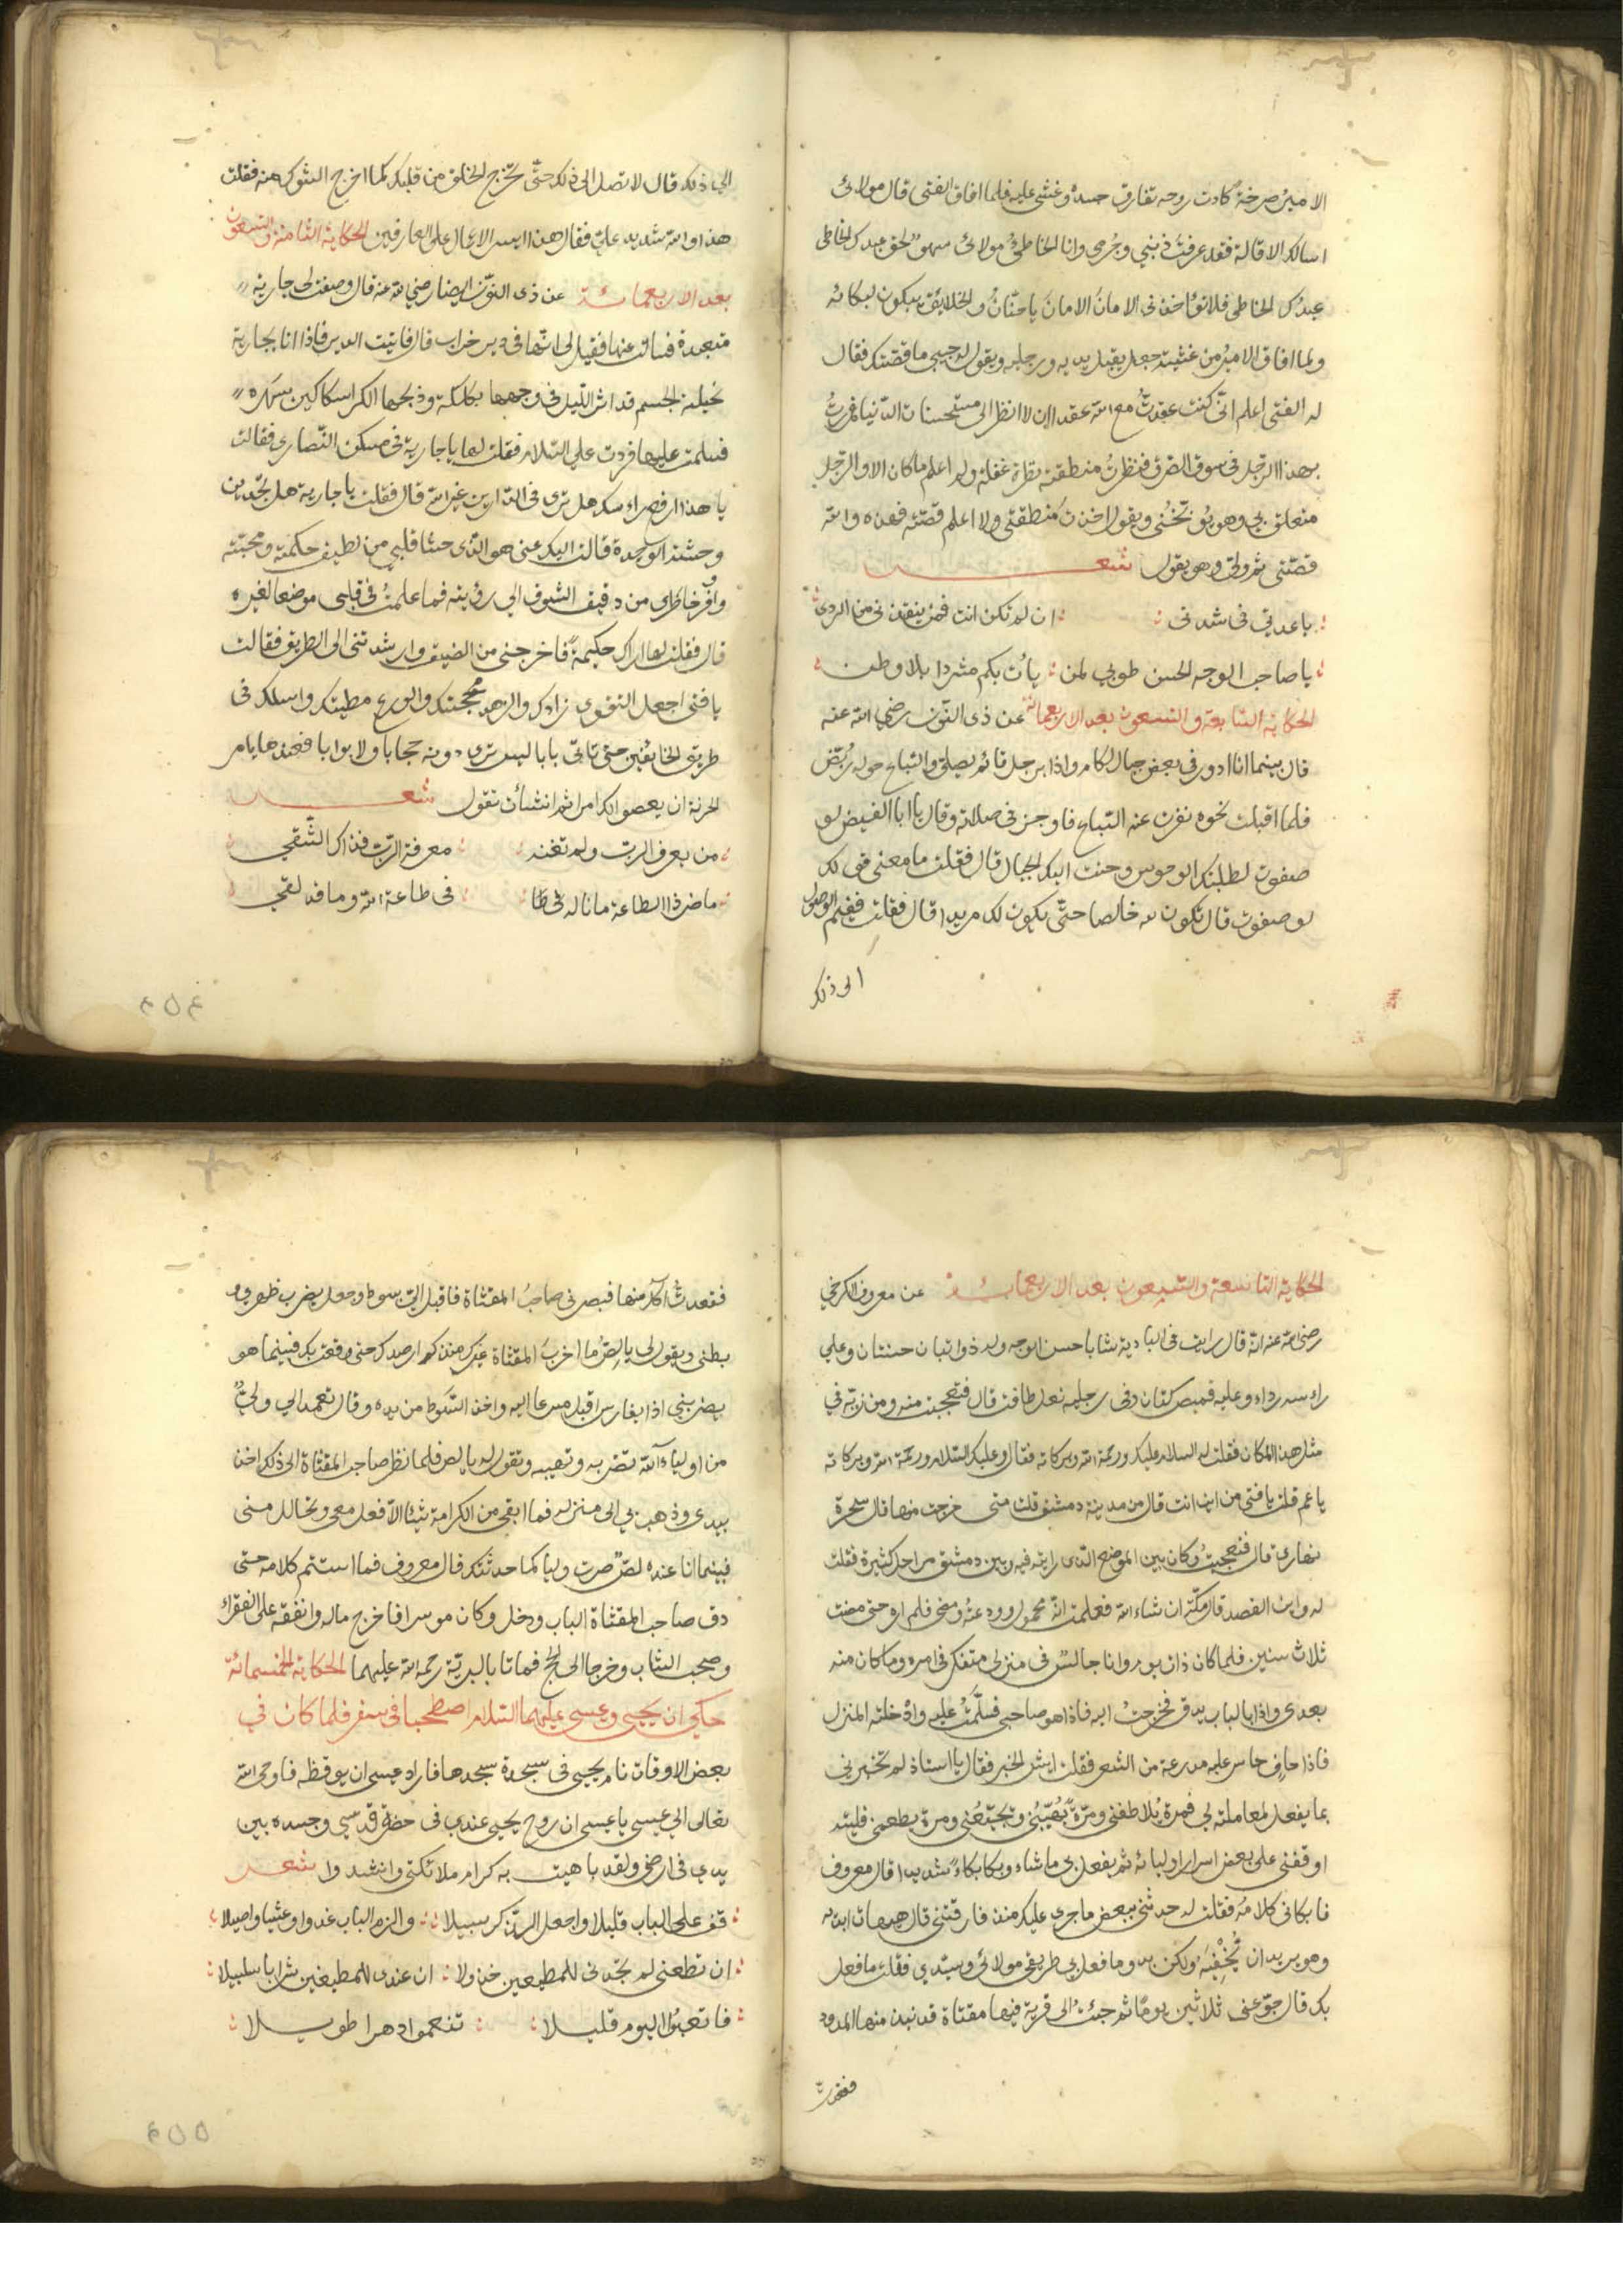 الامير صرخة كادت روحه تفارق جسده وغشي عليه فلما افاق الفتى قال مولائ
اسالك الاقالة فقد عرفت ذنبي وجرمي وانا الخاطئ مولائ عبدك الخاطى
عبدك الخاطى فلا تؤاخذنى الامان الامان ياحنان والخلايق يبكون لبكائه
ولما افاق الامير من غشيته جعل يقبل يديه ورجليه ويقول له حبيبى ما قصتك فقال
له الفتى اعلم انى كنت عقدت مع الله عقدا ان لا انظر الى مستحسنات الدنيا فمررت
بهذا الرجل فى سوق الصرف فنظرت منطقته نظرة غفلة ولم اعلم ما كان الا والرجل
متعلق بي وهو يوبخنى ويقول اخذت منطقتى ولا اعلم قصته فهذه والله
قصتى ثم ولى وهو يقول شعر
ياعدتي فى شدتى ان لم تكن انت فمن ينقذنى من الردى
يا صاحب الوجه الحسن طوبي لمن بات بكم مشردا بلا وطن
الحكاية السابعة والتسعون بعد الاربعمائة عن ذى النون رضي الله عنه
قال بينما انا ادور فى بعض جبال لكام واذا برجل قائم يصلي والسباع حوله ربض
فلما اقبلت نحوه نفرت عنه السباع فاوجز فى صلاته وقال يا ابا الفيض لو
صفوت لطلبتك الوحوش وحنت اليك الجبال قال فقلت ما معنى قولك
لو صفوت قال تكون لله خالصا حتى يكون لك مريدا قال فقلت فبم الوصول
الى ذلك
الي ذلك قال لا تصل الى ذلك حتى تخرج الخلق من قلبك كما اخرج الشوك منه فقلت
هذا والله شديد علي فقال هذا ايسر الاعمال على العارفين الحكاية الثامنة والتسعون
بعد الاربعمائة عن ذى النون ايضا رضي الله عنه قال وصفت لى جارية
متعبدة فسالت عنها فقيل لى انها فى دير خراب قال فاتيت الدير فاذا انا بجارية
نحيلة الجسم قد اثر الليل فى وجهها بكلكله وذبحها الكرا سكاكين سهره
فسلمت عليها فردت علي السلام فقلت لها يا جارية فى مسكن النصارى فقالت
يا هذا ارفع راسك هل ترى فى الدارين غير الله قال فقلت يا جارية هل تجدين
وحشة الوحدة قالت اليك عنى هو الذى حشا قلبي من لطيف حكمته ومحبته
وافر خاطرى من دقيق الشوق الي رؤيته فما علمت فى قلبى موضعا لغيره
قال فقلت لها اراك حكيمة فاخرجنى من الضيق وارشدتنى الى الطريق فقالت
يا فتى اجعل التقوى زادك والزهد محجتك والورع مطيتك واسلك فى
طريق الخائفين حتى تاتى بابا ليس ترى دونه حجابا ولا بوابا فعندها يامر
الخزنة ان يعصوا لك امرا ثم انشأت تقول شعر
من يعرف الرب ولم تغنه معرفة الرب فذاك الشقي
ما ضر ذا الطاعة ما ناله فى طاعة الله وما قد لقي
٤٥٤
الحكاية التاسعة والتسعون بعد الاربعمائة عن معروف الكرخي
رضي الله عنه انه قال رايت فى البادية شابا حسن الوجه وله ذوابتان حسنتان وعلي
راءسه رداء وعليه قميص كتان وفى رجليه نعل طاق قال فتعجبت منه ومن زيه في
مثل هذا المكان فقلت له السلام عليك ورحمة الله وبركاته فقال وعليك السلام ورحمة الله وبركاته
يا عم قلت يا فتى من اين انت قال من مدينة دمشق قلت متى خرجت منها قال سحرة
نهارى قال فتعجبت وكان بين الموضع الذى رايته فيه وبين دمشق مراحل كثيرة فقلت
له واين القصد قال مكة ان شاء الله فعلمت انه محمول وودعته ومضى فلم اره حتى مضت
ثلاث سنين فلما كان ذات يوم وانا جالس فى منزلى متفكر فى امره وما كان منه
بعدى واذا بالباب يدق فخرجت اليه فاذا هو صاحبى فسلمت عليه وادخلته المنزل
فاذا حاف حاسر عليه مدرعة من الشعر فقلت ايش الخبر فقال يا استاذ لم تخبرنى
بما يفعل لمعاملته لي فمرة يلاطفنى ومرة يهيبنى ومرة يجيعنى ومرة يطعمنى فليته
اوقفنى على بعض اسرار اوليائه ثم يفعل بى ما شاء وبكا بكاء شديدا قال معروف
فابكانى كلامه فقلت له حدثنى ببعض ما جرى عليك منذ فارقتنى قال هيهات ابديه
وهو يريد ان يخفيه ولكن بدو ما فعل بى طريقى مولائى وسيدى فقلت ما فعل
بك قال جوعنى ثلاثين يوما ثم جئت الى قرية فيها مقثاة قد نبذ منها المدود
فقعدت
فقعدت آكل منها فبصرنى صاحب المقثاة فاقبل الي بسوط وجعل يضرب ظهرى و
بطنى ويقول لى يا لص ما اخرب المقثاة غيرك منذ كم ارصدك حتى وقعت بك فبينما هو
يضربنى اذا بفارس اقبل مسرعا اليه واخذ السوط من يده وقال تعمد الى ولي
من اولياء الله تضربه وتعيبه وتقول له يا لص فلما نظر صاحب المقثاة الى ذلك اخذ
بيدى وذهب بي الى منزله فما ابقى من الكرامة شيئا الا فعل معى وتحالل منى
فبينما انا عنده لص صرت وليا كما حدثتك قال معروف فما استتم كلامه حتى
دق صاحب المقثاة الباب ودخل وكان موسرا فاخرج ماله وانفقه على الفقراء
وصحب الشاب وخرجا الى الحج فماتا بالبرية رحمة الله عليهما الحكاية الخمسمائة
حكي ان يحيى وعيسى عليهما السلام اصطحبا فى سفر فلما كان في
بعض الاوقات نام يحيى فى سجدة سجدها فاراد عيسى ان يوقظه فاوحى الله
تعالى الي عيسى يا عيسى ان روح يحيى عندى فى حضرة قدسي وجسده بين
يدي فى ارضى ولقد باهيت به كرام ملائكتى وانشدوا شعر
قف على الباب قليلا واجعل الذكر سبيلا والزم الباب غدوا وعشيا واصيلا
ان تطعنى لم تجدنى للمطيعين خذولا ان عندى للمطيعين شرابا سلسبيلا
فاتعبوا اليوم قليلا تنعموا دهرا طويلا
٤٥٥